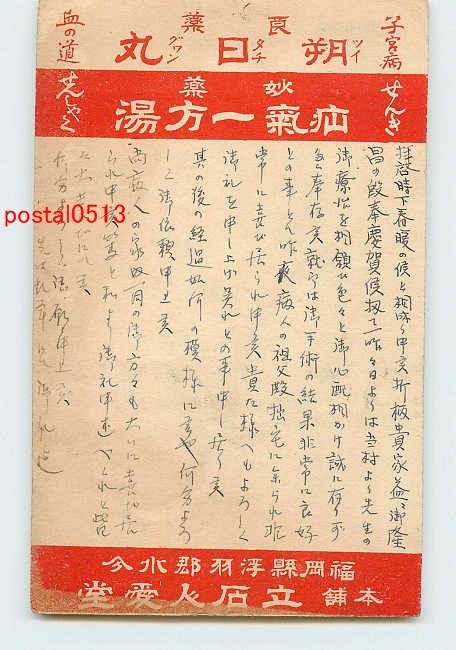 子宮病
良薬
朔日丸
ツイタチグワン
血の道
せんき
妙薬
疝氣一方湯
せんしやく
拝啓時下春暖の候と相成り申候折柄貴家益々御隆
昌の段奉慶賀候扨て一昨々日よりは当村より先生の
御療治を相願ひ色々と御心配相かけ誠に有りがたく
奉存候就ては御手術の結果非常に良好
との事にて昨夜病人の祖父殿拙宅に参られ非
常に喜び居られ申候貴た様へもよろしく
御礼を申し上げ呉れとの事申し居り候
其の後の経過如何の模様に候や何分よろ
しく御依頼申上候
尚病人の家奴一同の御方々も大いに喜び居
られ申候
私より御礼申述べくれと皆
御願申上候
postal0513
福岡縣浮羽郡水分
本舗
立石仁愛堂